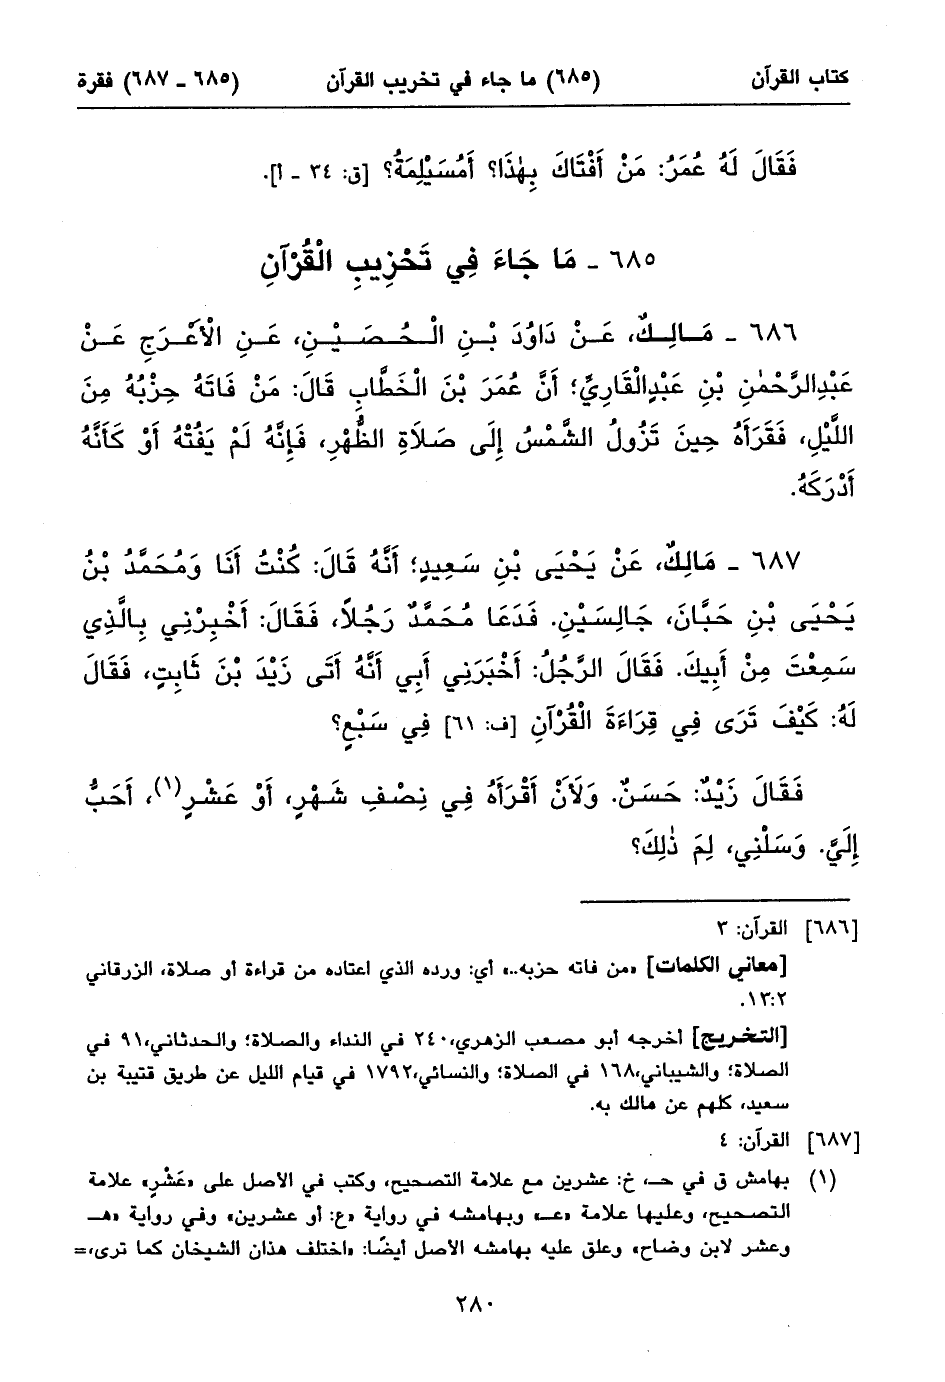 كتاب القرآن (٦٨٥) ما جاء في تخريب القرآن (٦٨٥ ـ ٦٨٧) فقرة
فَقَالَ لَهُ عُمَرُ: مَنْ أَفْتَاكَ بِهٰذَا؟ أَمُسَيْلِمَةُ؟ [ق: ٣٤ ـ أ].
٦٨٥ ـ مَا جَاءَ فِي تَحْزِيبِ الْقُرْآنِ
٦٨٦ ـ مَالِكٌ، عَنْ دَاوُدَ بْنِ الْحُصَيْنِ، عَنِ الْأَعْرَجِ عَنْ
عَبْدِالرَّحْمٰنِ بْنِ عَبْدٍالْقَارِيِّ؛ أَنَّ عُمَرَ بْنَ الْخَطَّابِ قَالَ: مَنْ فَاتَهُ حِزْبُهُ مِنَ
اللَّيْلِ، فَقَرَأَهُ حِينَ تَزُولُ الشَّمْسُ إِلَى صَلَاةِ الظُّهْرِ، فَإِنَّهُ لَمْ يَفُتْهُ أَوْ كَأَنَّهُ
أَدْرَكَهُ.
٦٨٧ ـ مَالِكٌ، عَنْ يَحْيَى بْنِ سَعِيدٍ؛ أَنَّهُ قَالَ: كُنْتُ أَنَا وَمُحَمَّدُ بْنُ
يَحْيَى بْنِ حَبَّانَ، جَالِسَيْنِ. فَدَعَا مُحَمَّدٌ رَجُلاً، فَقَالَ: أَخْبِرْنِي بِالَّذِي
سَمِعْتَ مِنْ أَبِيكَ. فَقَالَ الرَّجُلُ: أَخْبَرَنِي أَبِي أَنَّهُ أَتَى زَيْدَ بْنَ ثَابِتٍ، فَقَالَ
لَهُ: كَيْفَ تَرَى فِي قِرَاءَةِ الْقُرْآنِ [ف: ٦١] فِي سَبْعٍ؟
فَقَالَ زَيْدٌ: حَسَنٌ. وَلَأَنْ أَقْرَأَهُ فِي نِصْفِ شَهْرٍ، أَوْ عَشْرٍ(١)، أَحَبُّ
إِلَيَّ. وَسَلْنِي، لِمَ ذٰلِكَ؟
[٦٨٦] القرآن: ٣
[معاني الكلمات] «من فاته حزبه..» أي: ورده الذي اعتاده من قراءة أو صلاة، الزرقاني
١٣:٢.
[التخريج] أخرجه أبو مصعب الزهري،٢٤٠ في النداء والصلاة؛ والحدثاني،٩١ في
الصلاة؛ والشيباني،١٦٨ في الصلاة؛ والنسائي،١٧٩٢ في قيام الليل عن طريق قتيبة بن
سعيد، كلهم عن مالك به.
[٦٨٧] القرآن: ٤
(١) بهامش ق في حـ، خ: عشرين مع علامة التصحيح، وكتب في الأصل على «عَشْرٍ» علامة
التصحيح، وعليها علامة «عـ» وبهامشه في رواية «ع: أو عشرين» وفي رواية «هـ
وعشر لابن وضاح» وعلق عليه بهامشه الأصل أيضًا: «اختلف هذان الشيخان كما ترى،=
٢٨٠